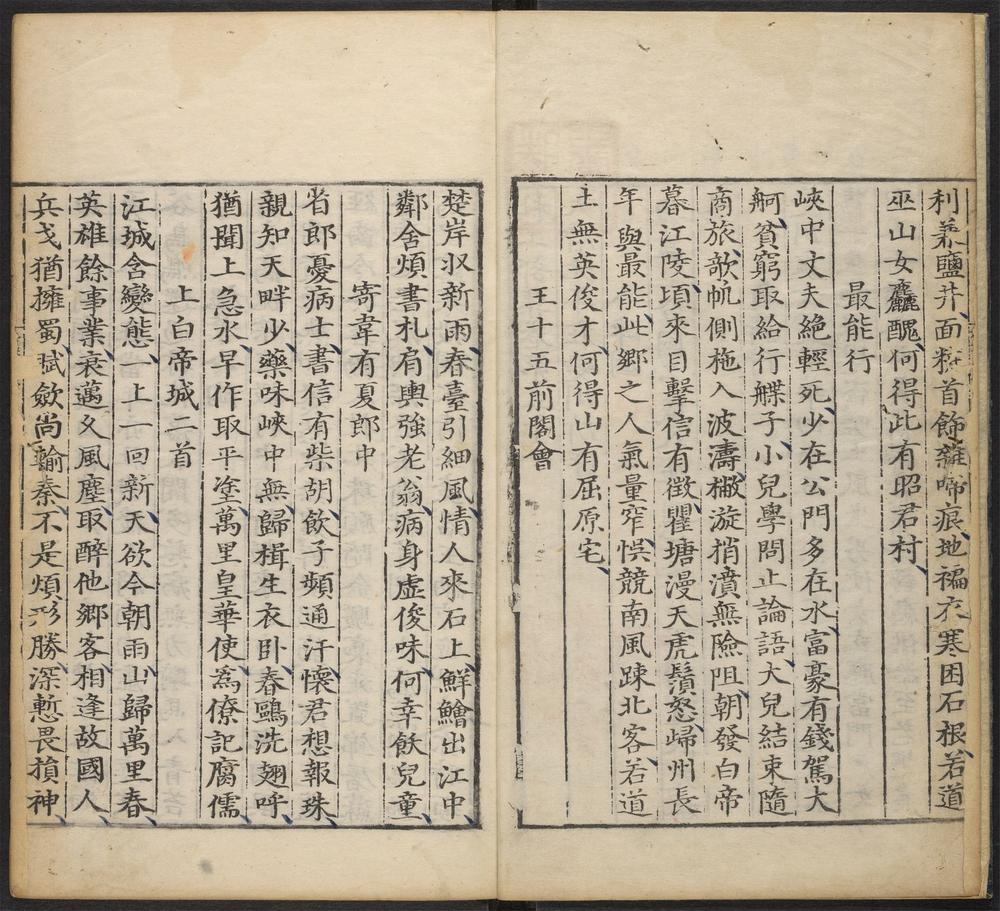 利兼鹽井面粧首飾雜啼痕地褊衣寒困石根若道
巫山女麤醜何得此有昭君村
最能行
峽中丈夫絕輕死少在公門多在水富豪有錢駕大
舸貧窮取給行艓子小兒學問止論語大兒結束隨
商旅欹帆側柂入波濤撇漩捎濆無險阻朝發白帝
暮江陵頃來目擊信有徵瞿塘漫天虎鬚怒歸州長
年與最能此鄉之人氣量窄悞競南風踈北客若道
土無英俊才何得山有屈原宅
王十五前閣會
楚岸収新雨春臺引細風情人來石上鮮鱠出江中
鄰舍煩書札肩輿強老翁病身虛俊味何幸飫兒童
寄韋有夏郎中
省郎憂病士書信有柴胡飲子頻通汗懷君想報珠
親知天畔少藥味峽中無歸楫生衣卧春鷗洗翅呼
猶聞上急水早作取平塗萬里皇華使爲僚記腐儒
上白帝城二首
江城含變態一上一回新天欲今朝雨山歸萬里春
英雄餘事業衰邁久風塵取醉他鄉客相逢故國人
兵戈猶擁蜀賦斂尚輸秦不是煩形勝深慙畏損神